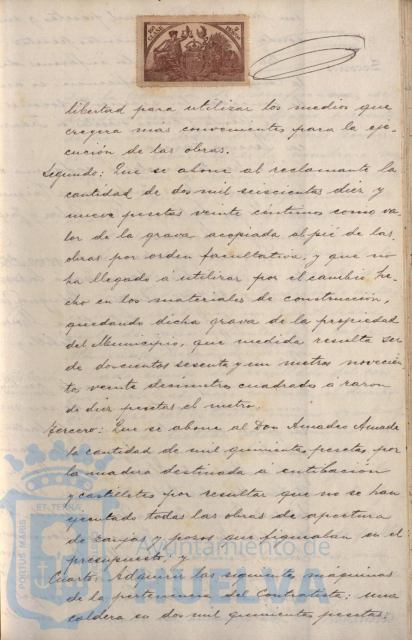 libertad para utilizar los medios que
creyera mas convenientes para la eje-
cución de las obras.
Segundo: Que se abone al reclamante la
cantidad de dos mil seiscientas diez y
nueve pesetas veinte céntimos como va-
lor de la grava acopiada al pié de las
obras por orden facultativa, y que no
ha llegado á utilizar por el cambio he-
cho en los materiales de construcción,
quedando dicha grava de la propiedad
del Municipio, que medida resulta ser
de doscientos sesenta y un metros novecien
tos veinte decimetros cuadrados á razon
de diez pesetas el metro.
Tercero: Que se abone al Don Amadeo Amade
la cantidad de mil quinientas pesetas por
la madera destinada á entibación
y castilletes por resultar que no se han
ejecutado todas las obras de apertura
de zanjas y pozos que figuraban en el
presupuesto, y
Cuarto: Adquirir las siguientes máquinas
de la pertenencia del Contratista: una
caldera en dos mil quinientas pesetas
Ayuntamiento de
HUELVA
PORTUS MARIS
ET TERRA